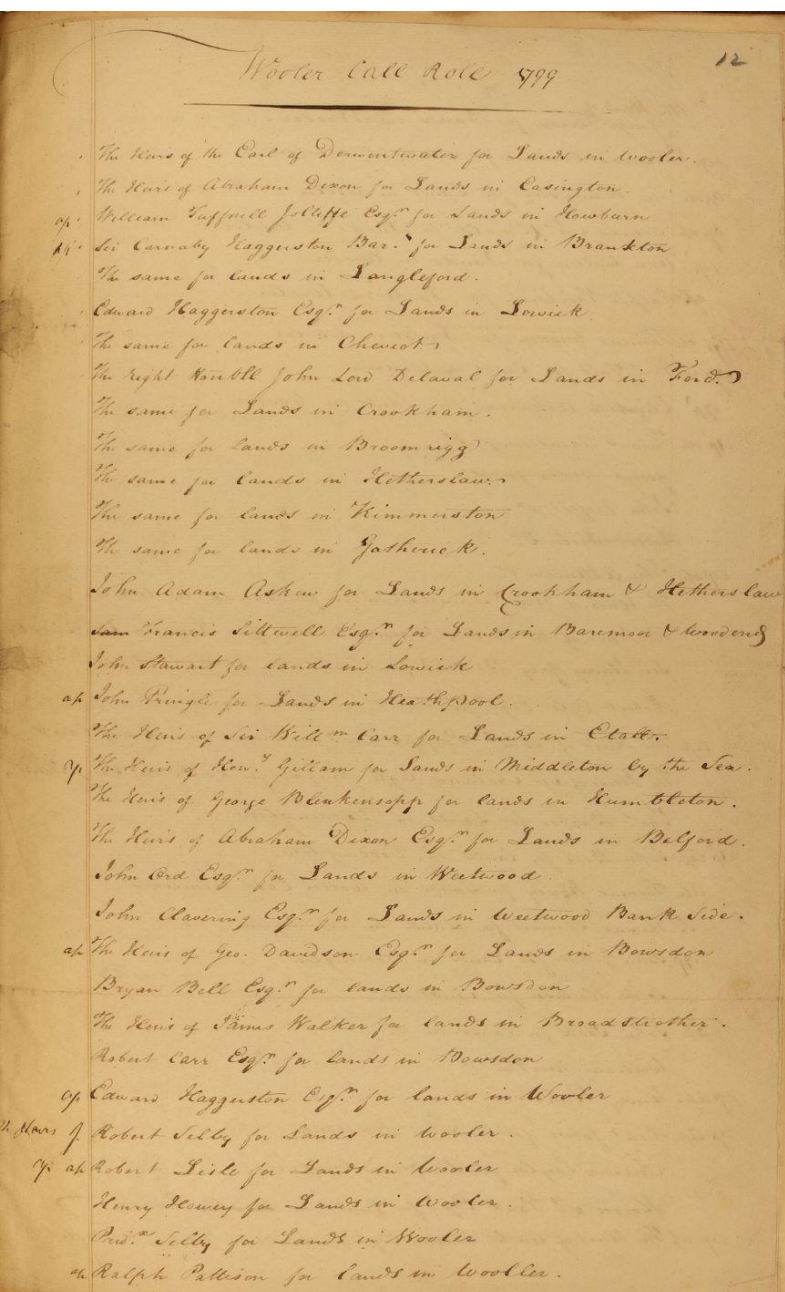 12
Wooler Call Roll 1799
The Heirs of the Earl of Derwentwater for Lands in Wooler.
The Heirs of Abraham Dixon for Lands in Easington.
ap William Tuffnell Jolliffe Esqr. for Lands in Howburn
Sir Carnaby Haggerston Bar.t for Lands in Brankton
The same for lands in Langleford.
Edward Haggerston Esqr. for Lands in Lowick
The same for lands in Cheviot
The right Honbll John Lord Delaval for Lands in Ford.
The same for Lands in Crookham.
The same for lands in Broomrigg
The same for lands in Hetherslaw
The same for lands in Kimmerston
The same for lands in Gatherick.
John Adam Askew for Lands in Crookham & Hetherslaw
Francis Sittwell Esqr. for Lands in Baremoor & Woodend
John Stewart for lands in Lowick
ap John Pringle for Lands in Heathpool.
The Heirs of Sir Willm Carr for Lands in Etall.
The Heirs of Hen.y Gillam for Lands in Middleton by the Sea.
The Heirs of George Blenkensopp for lands in Humbleton.
The Heirs of Abraham Dixon Esqr. for Lands in Belford.
John Ord Esqr. for Lands in Weetwood.
John Clavering Esqr. for Lands in Weetwood Bank Side.
ap The Heirs of Geo. Davidson Esqr. for Lands in Bowsdon
Bryan Bell Esqr. for lands in Bowsden
The Heirs of James Walker for lands in Broadstrother.
Robert Carr Esqr. for lands in Bowsdon
ap Edward Haggerston Esqr. for lands in Wooler
Heirs of Robert Selby for Lands in Wooler.
ap Robert Lisle for Lands in Wooler
Henry Howey for Lands in Wooler.
Selby for Lands in Wooler
ap Ralph Pattison for lands in Wooller.